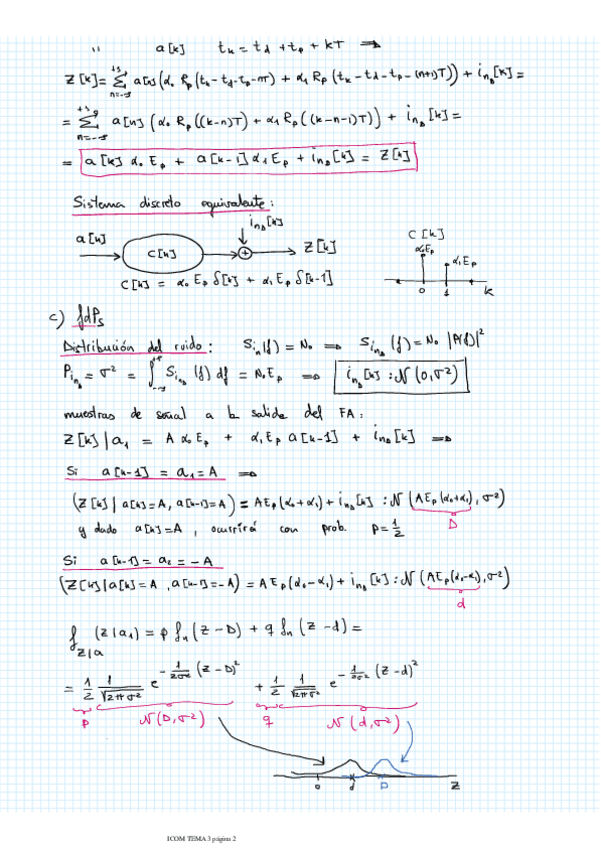 " a[k] t_k = t_d + t_p + kT ⇒
Z[k] = Σ_{n=-∞}^{+∞} a[n](α₀ R_p(t_k - t_d - t_p - nT) + α₁ R_p(t_k - t_d - t_p - (n+1)T)) + i_{n_D}[k] =
= Σ_{n=-∞}^{+∞} a[n](α₀ R_p((k-n)T) + α₁ R_p((k-n-1)T)) + i_{n_D}[k] =
= a[k] α₀ E_p + a[k-1] α₁ E_p + i_{n_D}[k] = Z[k]
Sistema discreto equivalente:
i_{n_D}[k]
a[k] C[k] + Z[k]
C[k] = α₀ E_p δ[k] + α₁ E_p δ[k-1]
C[k]
α₀E_p
α₁E_p
0 1 k
c) fdPs
Distribución del ruido: S_{i_n}(f) = N₀ ⇒ S_{i_{n_D}}(f) = N₀ |P(f)|²
P_{i_{n_D}} = σ² = ∫_{-∞}^{+∞} S_{i_{n_D}}(f) df = N₀E_p ⇒ i_{n_D}[k] : N(0, σ²)
muestras de señal a la salida del FA:
Z[k] | a₁ = A α₀ E_p + α₁ E_p a[k-1] + i_{n_D}[k] ⇒
Si a[k-1] = a₁ = A ⇒
(Z[k] | a[k]=A, a[k-1]=A) = A E_p(α₀+α₁) + i_{n_D}[k] : N(A E_p(α₀+α₁), σ²)
D
y dado a[k]=A, ocurrirá con prob. p = 1/2
Si a[k-1] = a₂ = -A
(Z[k] | a[k]=A, a[k-1]=-A) = A E_p(α₀-α₁) + i_{n_D}[k] : N(A E_p(α₀-α₁), σ²)
d
f_{Z|a}(z|a₁) = p f_n(z-D) + q f_n(z-d) =
= 1/2 1/√(2πσ²) e^{-1/(2σ²) (z-D)²} + 1/2 1/√(2πσ²) e^{-1/(2σ²) (z-d)²}
p N(D, σ²) q N(d, σ²)
0 d D z
ICOM TEMA 3 página 2